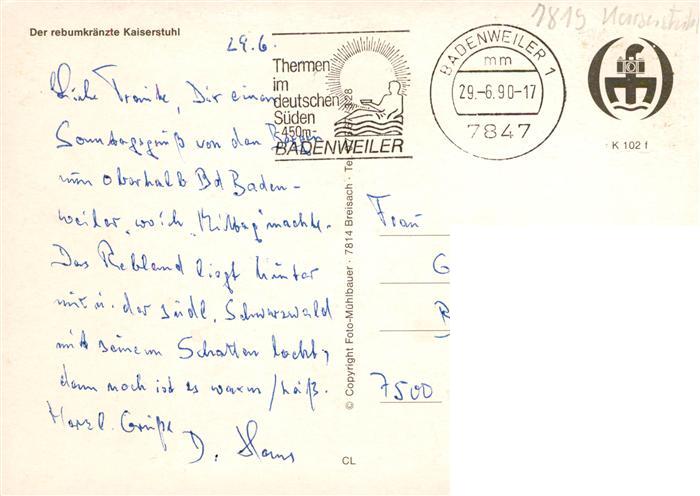 7819 Kaiserstuhl
Der rebumkränzte Kaiserstuhl
29.6.
Thermen
im
deutschen
Süden
-450m-
BADENWEILER
BADENWEILER 1
mm
29.-6.90-17
7847
K 102 f
Liebe Traute, Dir einen
Sonntagsgruß von den Bergen
nun oberhalb Bd Baden-
weiler, wo ich "Mittag" machte.
Das Rebland liegt hinter
mir u. der südl. Schwarzwald
mit seinem Schatten lockt,
denn noch ist es warm/heiß.
Herzl. Grüße
D. Hans
© Copyright Foto-Mühlbauer · 7814 Breisach · Tel. 328
CL
Frau
G
R
7500